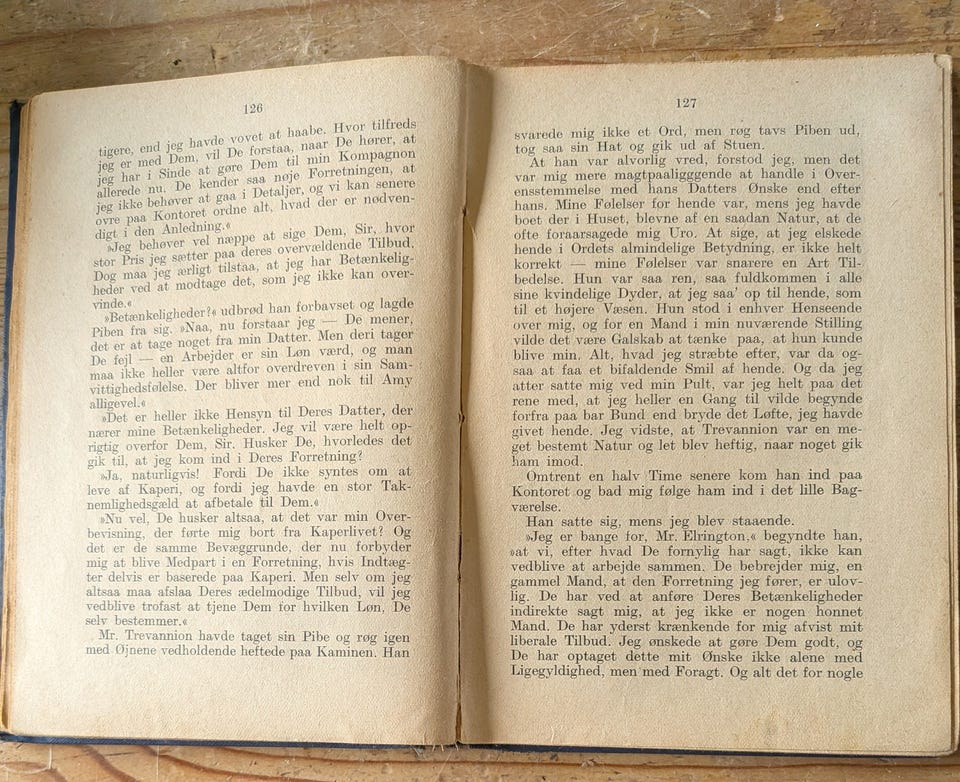 126
tigere, end jeg havde vovet at haabe. Hvor tilfreds
jeg er med Dem, vil De forstaa, naar De hører, at
jeg har i Sinde at gøre Dem til min Kompagnon
allerede nu. De kender saa nøje Forretningen, at
jeg ikke behøver at gaa i Detaljer, og vi kan senere
ovre paa Kontoret ordne alt, hvad der er nødven-
digt i den Anledning.«
»Jeg behøver vel næppe at sige Dem, Sir, hvor
stor Pris jeg sætter paa deres overvældende Tilbud.
Dog maa jeg ærligt tilstaa, at jeg har Betænkelig-
heder ved at modtage det, som jeg ikke kan over-
vinde.«
»Betænkeligheder?« udbrød han forbavset og lagde
Piben fra sig. »Naa, nu forstaar jeg — De mener,
det er at tage noget fra min Datter. Men deri tager
De fejl — en Arbejder er sin Løn værd, og man
maa ikke heller være altfor overdreven i sin Sam-
vittighedsfølelse. Der bliver mer end nok til Amy
alligevel.«
»Det er heller ikke Hensyn til Deres Datter, der
nærer mine Betænkeligheder. Jeg vil være helt op-
rigtig overfor Dem, Sir. Husker De, hvorledes det
gik til, at jeg kom ind i Deres Forretning?
»Ja, naturligvis! Fordi De ikke syntes om at
leve af Kaperi, og fordi jeg havde en stor Tak-
nemlighedsgæld at afbetale til Dem.«
»Nu vel, De husker altsaa, at det var min Over-
bevisning, der førte mig bort fra Kaperlivet? Og
det er de samme Bevæggrunde, der nu forbyder
mig at blive Medpart i en Forretning, hvis Indtæg-
ter delvis er baserede paa Kaperi. Men selv om jeg
altsaa maa afslaa Deres ædelmodige Tilbud, vil jeg
vedblive trofast at tjene Dem for hvilken Løn, De
selv bestemmer.«
Mr. Trevannion havde taget sin Pibe og røg igen
med Øjnene vedholdende heftede paa Kaminen. Han
127
svarede mig ikke et Ord, men røg tavs Piben ud,
tog saa sin Hat og gik ud af Stuen.
At han var alvorlig vred, forstod jeg, men det
var mig mere magtpaaligggende at handle i Over-
ensstemmelse med hans Datters Ønske end efter
hans. Mine Følelser for hende var, mens jeg havde
boet der i Huset, blevne af en saadan Natur, at de
ofte foraarsagede mig Uro. At sige, at jeg elskede
hende i Ordets almindelige Betydning, er ikke helt
korrekt — mine Følelser var snarere en Art Til-
bedelse. Hun var saa ren, saa fuldkommen i alle
sine kvindelige Dyder, at jeg saa' op til hende, som
til et højere Væsen. Hun stod i enhver Henseende
over mig, og for en Mand i min nuværende Stilling
vilde det være Galskab at tænke paa, at hun kunde
blive min. Alt, hvad jeg stræbte efter, var da og-
saa at faa et bifaldende Smil af hende. Og da jeg
atter satte mig ved min Pult, var jeg helt paa det
rene med, at jeg heller en Gang til vilde begynde
forfra paa bar Bund end bryde det Løfte, jeg havde
givet hende. Jeg vidste, at Trevannion var en me-
get bestemt Natur og let blev heftig, naar noget gik
ham imod.
Omtrent en halv Time senere kom han ind paa
Kontoret og bad mig følge ham ind i det lille Bag-
værelse.
Han satte sig, mens jeg blev staaende.
»Jeg er bange for, Mr. Elrington,« begyndte han,
»at vi, efter hvad De fornylig har sagt, ikke kan
vedblive at arbejde sammen. De bebrejder mig, en
gammel Mand, at den Forretning jeg fører, er ulov-
lig. De har ved at anføre Deres Betænkeligheder
indirekte sagt mig, at jeg ikke er nogen honnet
Mand. De har yderst krænkende for mig afvist mit
liberale Tilbud. Jeg ønskede at gøre Dem godt, og
De har optaget dette mit Ønske ikke alene med
Ligegyldighed, men med Foragt. Og alt det for nogle